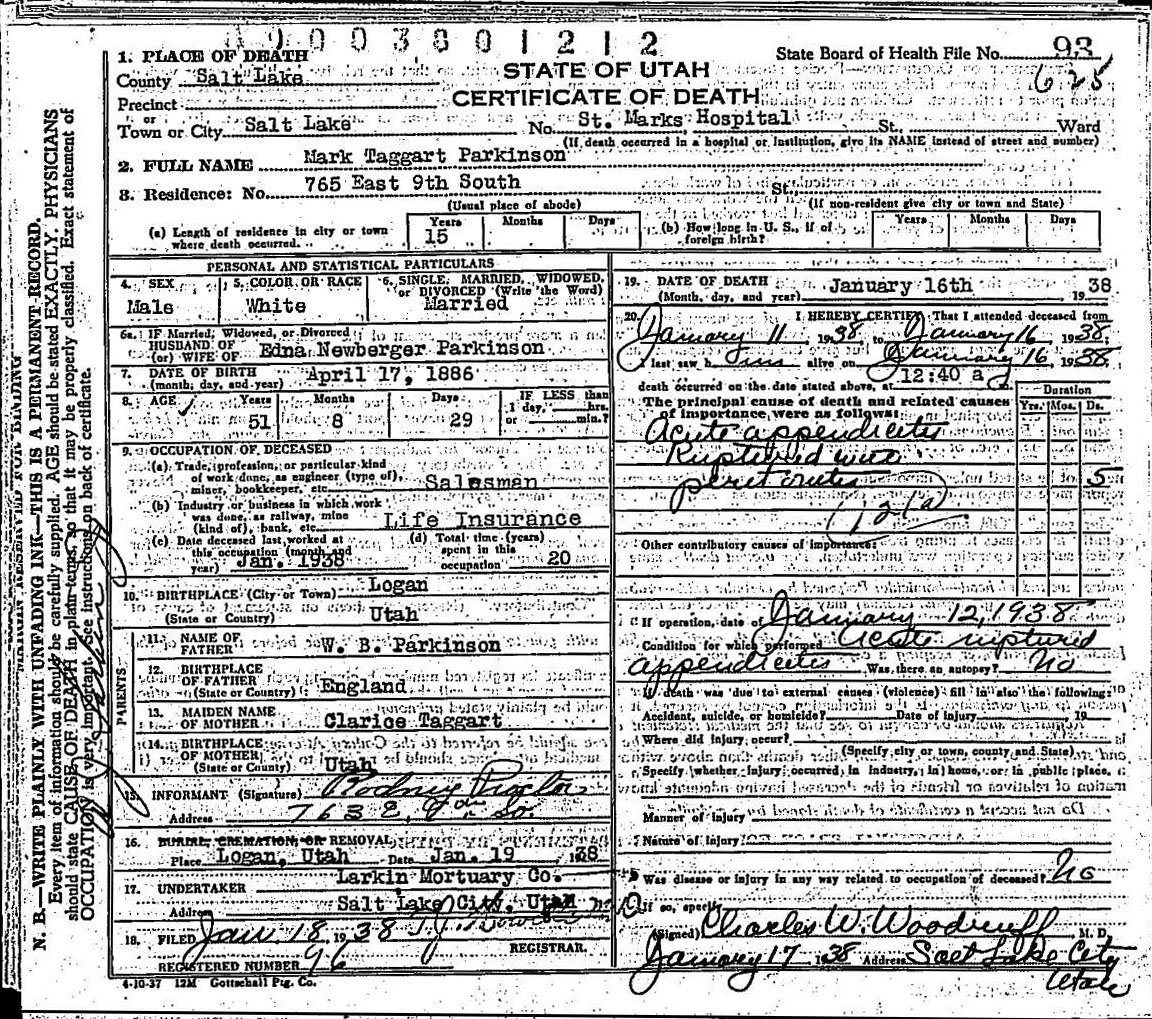 2003801212
1. PLACE OF DEATH
State Board of Health File No. 93
County Salt Lake
STATE OF UTAH
625
Precinct
CERTIFICATE OF DEATH
or
Town or City Salt Lake No. St. Marks Hospital St., Ward
(If death occurred in a hospital or institution, give its NAME instead of street and number)
2. FULL NAME Mark Taggart Parkinson
3. Residence: No. 765 East 9th South St.
(Usual place of abode) (If non-resident give city or town and State)
(a) Length of residence in city or town where death occurred. Years 15 Months Days
(b) How long in U. S., if of foreign birth? Years Months Days
PERSONAL AND STATISTICAL PARTICULARS
4. SEX Male
5. COLOR OR RACE White
6. SINGLE, MARRIED, WIDOWED, or DIVORCED (Write the Word) Married
6a. IF Married, Widowed, or Divorced
HUSBAND OF
(or) WIFE OF Edna Newberger Parkinson
7. DATE OF BIRTH
(month, day, and year) April 17, 1886
8. AGE Years 51 Months 8 Days 29 IF LESS than 1 day, hrs. or min.?
9. OCCUPATION OF DECEASED
(a) Trade, profession, or particular kind
of work done, as engineer (type of),
miner, bookkeeper, etc. Salesman
(b) Industry or business in which work
was done, as railway, mine
(kind of), bank, etc. Life Insurance
(c) Date deceased last worked at
this occupation (month and
year) Jan. 1938
(d) Total time (years)
spent in this
occupation 20
10. BIRTHPLACE (City or Town) Logan
(State or Country) Utah
PARENTS
11. NAME OF
FATHER W. B. Parkinson
12. BIRTHPLACE
OF FATHER
(State or Country) England
13. MAIDEN NAME
OF MOTHER Clarice Taggart
14. BIRTHPLACE
OF MOTHER
(State or Country) Utah
15. INFORMANT (Signature) Rodney Proctor
Address 763 E. 9th So.
16. BURIAL, CREMATION, OR REMOVAL
Place Logan, Utah Date Jan. 19 1938
17. UNDERTAKER Larkin Mortuary Co.
Address Salt Lake City, Utah
18. FILED Jan. 18, 1938
REGISTRAR.
REGISTERED NUMBER 96
4-10-37 12M Gottschall Ptg. Co.
19. DATE OF DEATH
(Month, day, and year) January 16th 1938
20. I HEREBY CERTIFY, That I attended deceased from
January 11 1938, to January 16, 1938,
I last saw him alive on January 16, 1938,
death occurred on the date stated above, at 12:40 a
The principal cause of death and related causes
of importance were as follows:
Duration
Yrs. Mos. Ds.
Acute appendicitis
Ruptured with
peritonitis 5
(121a)
Other contributory causes of importance:
If operation, date of January 12, 1938
Condition for which performed Acute ruptured
appendicitis Was there an autopsy? No
If death was due to external causes (violence) fill in also the following:
Accident, suicide, or homicide? Date of Injury 19
Where did injury occur?
(Specify city or town, county and State)
Specify whether injury occurred in industry, in home, or in public place.
Manner of injury
Nature of injury
Was disease or injury in any way related to occupation of deceased? No
If so, specify
(Signed) Charles W. Woodruff M. D.
January 17 1938 Address Salt Lake City
Utah
MARGIN RESERVED FOR BINDING
N. B.—WRITE PLAINLY WITH UNFADING INK—THIS IS A PERMANENT RECORD.
Every item of information should be carefully supplied. AGE should be stated EXACTLY. PHYSICIANS
should state CAUSE OF DEATH in plain terms, so that it may be properly classified. Exact statement of
OCCUPATION is very important. See instructions on back of certificate.